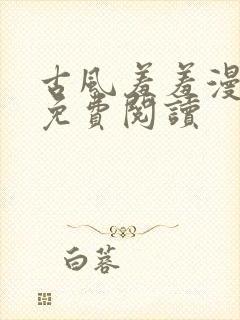 古风羞羞漫
免費閱讀
白蓉